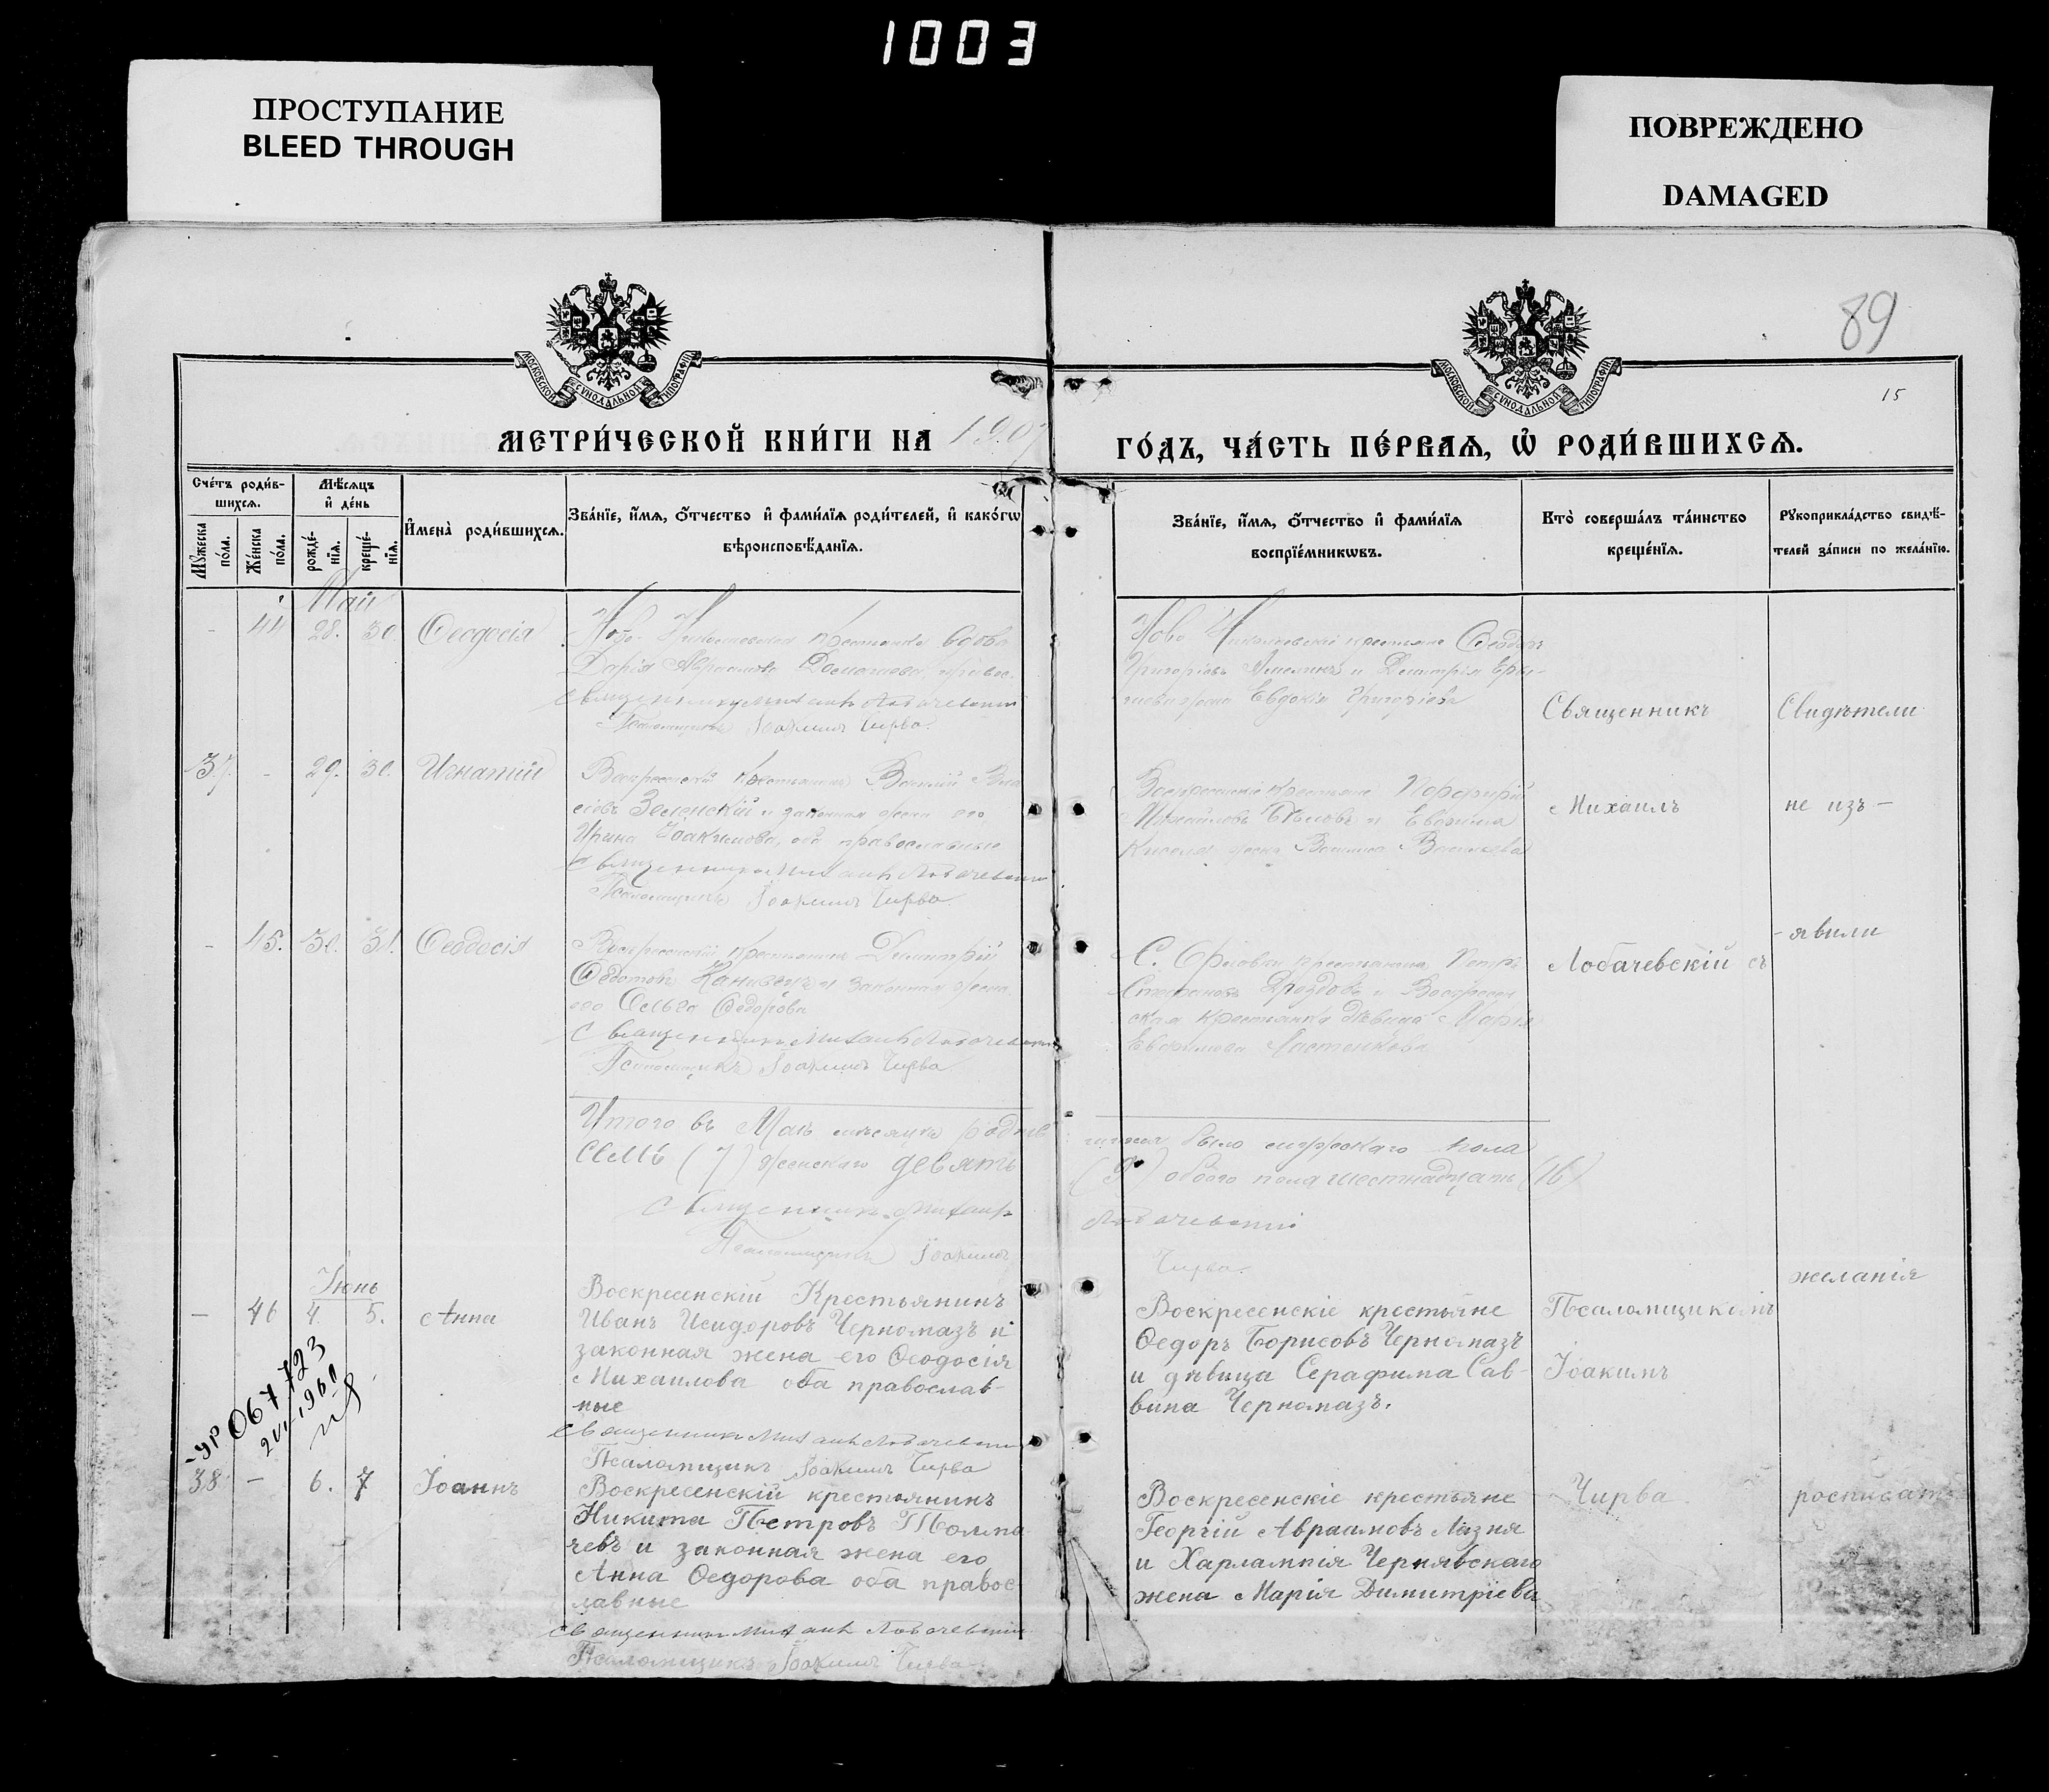 1003
ПРОСТУПАНИЕ
BLEED THROUGH
ПОВРЕЖДЕНО
DAMAGED
89
15
МОСКОВСКОЙ СУНОДАЛЬНОЙ ТИПОГРАФІИ
МОСКОВСКОЙ СУНОДАЛЬНОЙ ТИПОГРАФІИ
МЕТРИ́ЧЕСКОЙ КНИ́ГИ НА 1907
ГО́ДЪ, ЧА́СТЬ ПЕ́РВАЯ, Ѡ҆ РОДИ́ВШИХСѦ.
Сче́тъ роди́в-
шихсѧ.
Мѹ́жеска
по́ла.
Же́нска
по́ла.
Мѣ́сѧцъ
и҆ де́нь
рожде́-
нїѧ.
креще́-
нїѧ.
И҆мена̀ роди́вшихсѧ.
Зва́нїе, и҆́мѧ, ѻ҆́тчество и҆ фами́лїѧ роди́телей, и҆ како́гѡ
вѣроисповѣ́данїѧ.
Зва́нїе, и҆́мѧ, ѻ҆́тчество и҆ фами́лїѧ
воспрїе́мникѡвъ.
Кто̀ соверша́лъ та́инство
креще́нїѧ.
Рѹкоприкла́дство свидѣ́-
телей за́писи по жела́нїю.
Май
- 44 28. 30. Ѳеодосія
Ново- Николаевская крестьянка вдова
Дарія
Священникъ Михаилъ Лобачевскій
Псаломщикъ Іоакимъ Чирва.
Ново Николаевскіе крестьяне Ѳеодоръ
Григорьевъ и Димитрія
жена Евдокія Григорьева
Священникъ
Свидѣтели
37. - 29. 30. Игнатій
Воскресенскій крестьянинъ Василій Вла
сіевъ Зеленскій и законная жена его
Ирина Іоакимова, оба православные
Священникъ Михаилъ Лобачевскій
Псаломщикъ Іоакимъ Чирва
Воскресенскіе крестьяне Порфирій
Михайловъ Бѣловъ и Евфимія
жена Васильева
Михаилъ
не изъ-
- 45. 30. 31. Ѳеодосія
Воскресенскій крестьянинъ Димитрій
Ѳедотовъ и законная жена
его Ольга Ѳедорова
Священникъ Михаилъ Лобачевскій
Псаломщикъ Іоакимъ Чирва
С. крестьянинъ Петръ
Стефановъ Дроздовъ и Воскресен
ская крестьянка дѣвица Марія
Евфимова Ластенкова
Лобачевскій съ
-явили
Итого въ Маѣ мѣсяцѣ родив
шихся было мужскаго пола
семь (7) женскаго девять
(9) обоего пола шестнадцать (16)
Священникъ Михаилъ
Лобачевскій
Псаломщикъ Іоакимъ
Чирва.
желанія
Іюнь
- 46 4. 5. Анна
Воскресенскій Крестьянинъ
Иванъ Исидоровъ Черномазъ и
законная жена его Ѳеодосія
Михаилова оба православ-
ные
Священникъ Михаилъ Лобачевскій
Псаломщикъ Іоакимъ Чирва
Воскресенскіе крестьяне
Ѳедоръ Борисовъ Черномазъ
и дѣвица Серафима Сав-
вина Черномазъ.
Псаломщикомъ
Іоакимъ
-УР 067723
2VI-1960
38. - 6. 7 Іоаннъ
Воскресенскій крестьянинъ
Никита Петровъ Толма
чевъ и законная жена его
Анна Ѳедорова оба правос-
лавные
Священникъ Михаилъ Лобачевскій
Псаломщикъ Іоакимъ Чирва
Воскресенскіе крестьяне
Георгій Авраамовъ Лазня
и Харлампія Чернявскаго
жена Марія Димитріева
Чирва
росписат